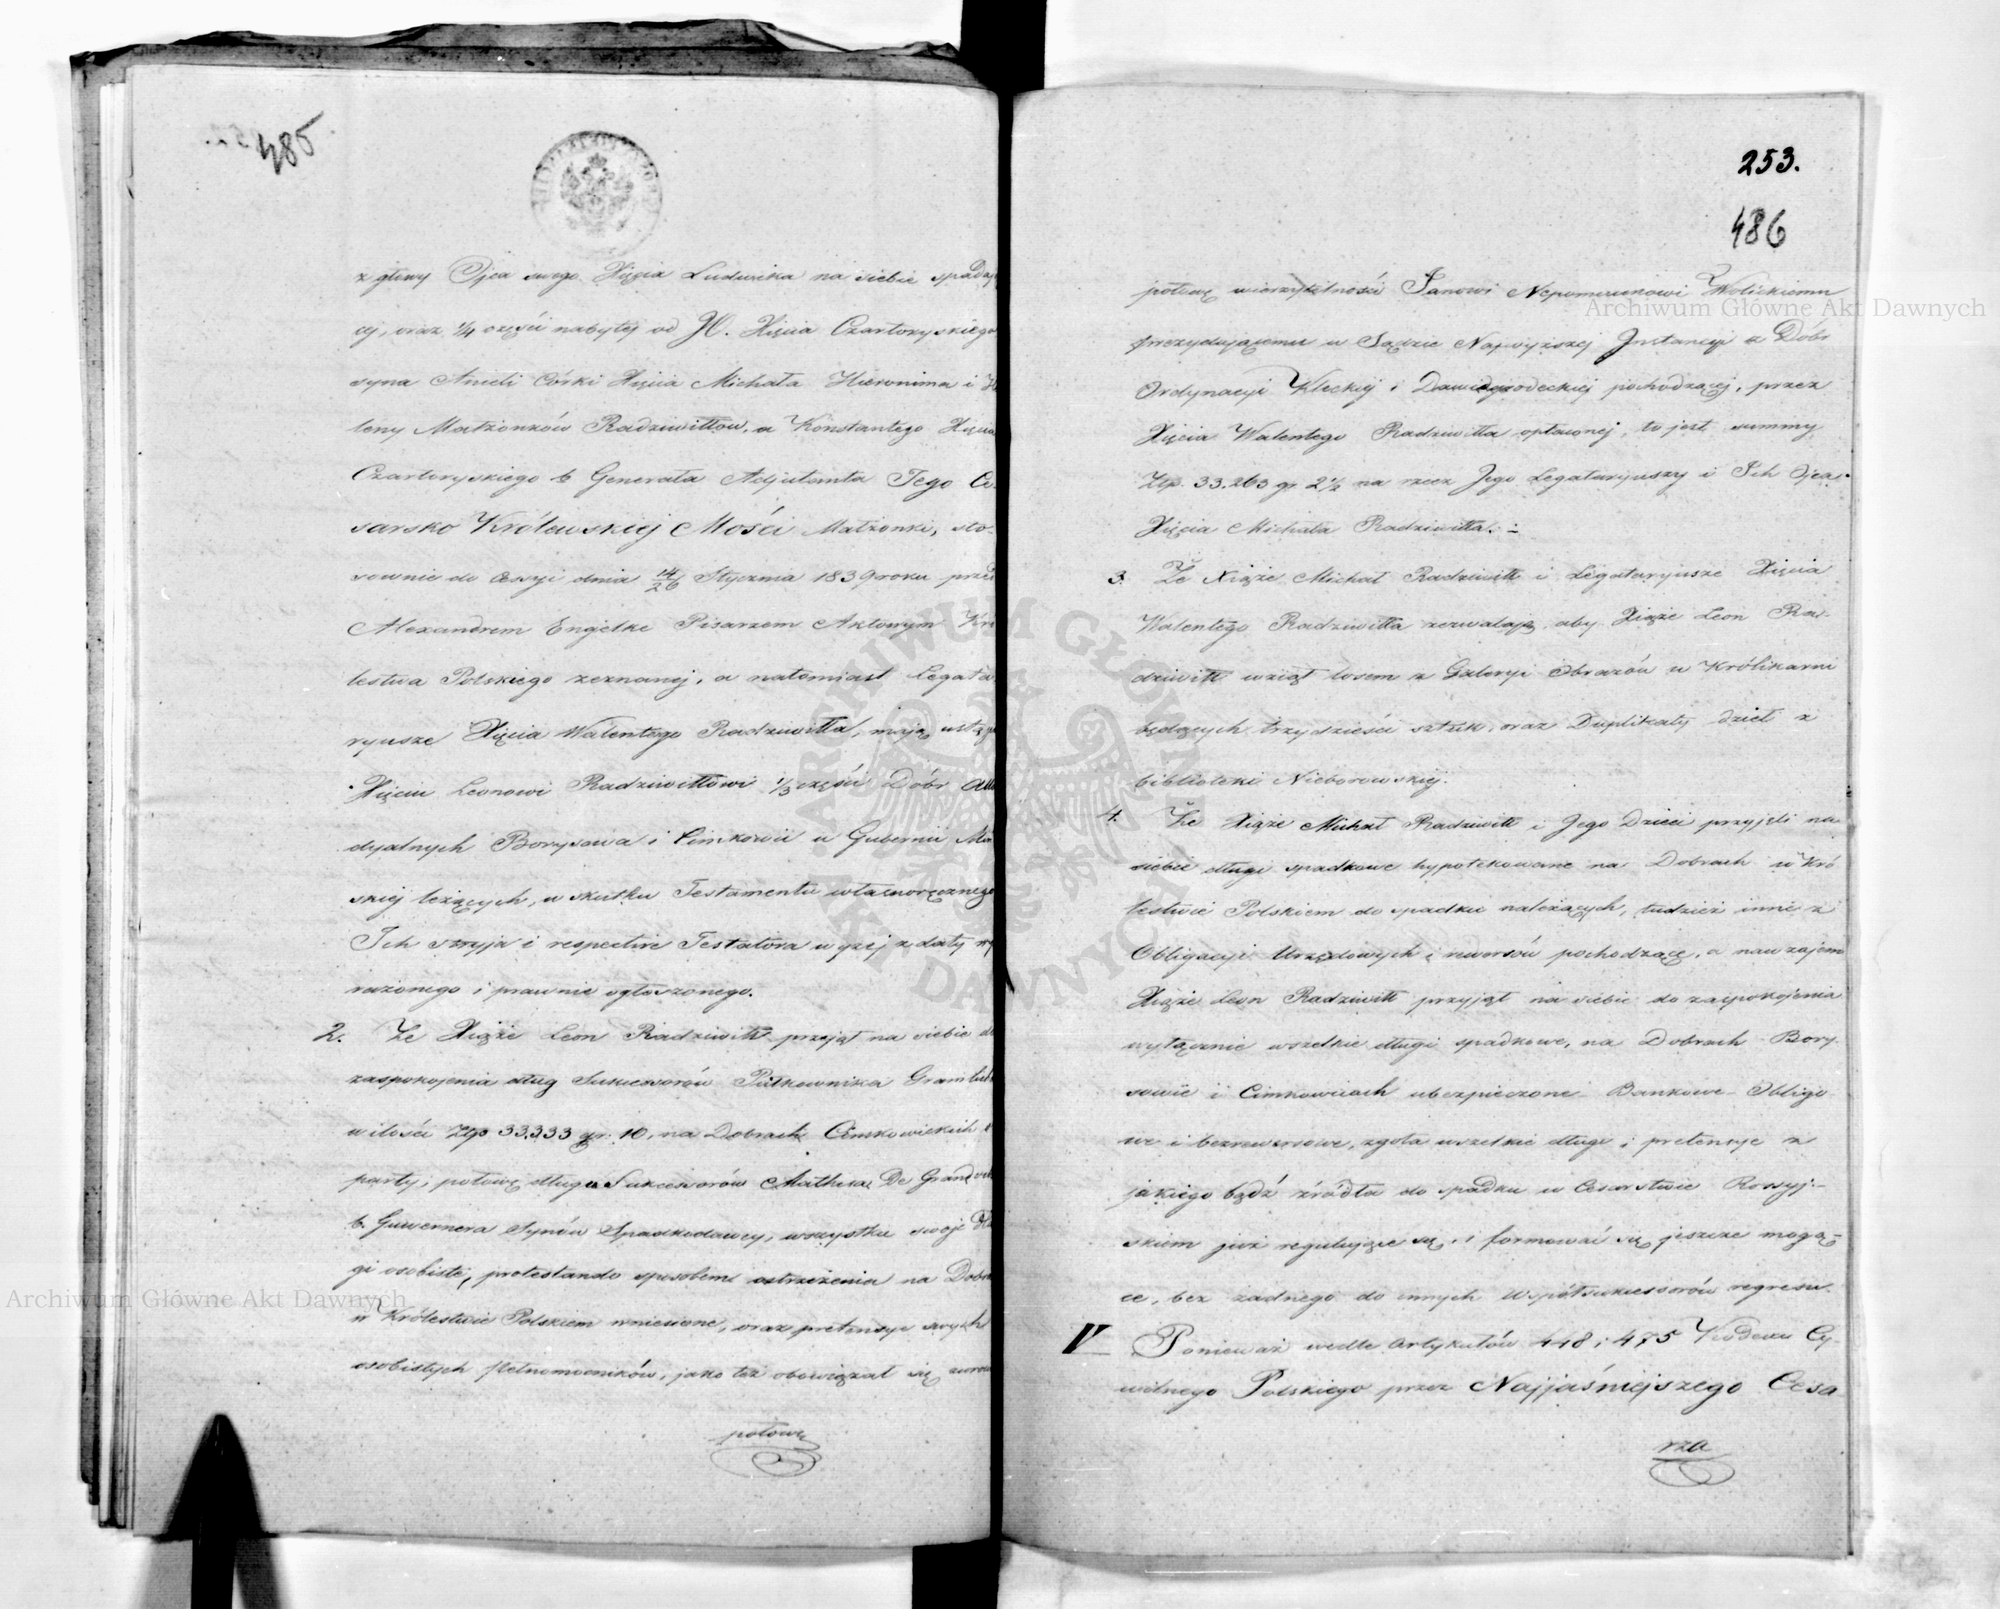 485
z głowy Ojca swego Xięcia Ludwika na siebie spadaj
cej, oraz 1/4 części nabytej od JO. Xięcia Czartoryskiego
syna Anieli Córki Xięcia Michała Hieronima i He
leny Małżonków Radziwiłłów, a Konstantego Xięcia
Czartoryskiego b Generała Adjutanta Jego Ce-
sarsko Królewskiej Mości Małżonki, sto-
sownie do Cessyi dnia 14/26 Stycznia 1839 roku przed
Alexandrem Engelke Pisarzem Aktowym Kró
lestwa Polskiego zeznanej, a natomiast Legata
ryusze Xięcia Walentego Radziwiłła, mają ustąp
Xięciu Leonowi Radziwiłłowi 1/3 części Dóbr Allo
dyalnych Borysowa i Cimkowic w Gubernii Miń
skiej leżących, w skutku Testamentu własnoręcznego
Ich stryja i respective Testatora wyżej z daty wy
rażonego i prawnie ogłoszonego.
2. Że Xiąże Leon Radziwiłł przyjął na siebie do
zaspokojenia dług Sukcessorów Pułkownika
w ilości Złp 33,333 gr. 10, na Dobrach Cimkowickich
party; połowę długu Sukcessorów Mathieu De
b. Guwernera Synów Spadkodawcy, wszystkie swoje dłu
gi osobiste, protestando sposobem ostrzeżenia na Dobra
w Królestwie Polskiem wniesione, oraz pretensye swych
osobistych Pełnomocników, jako też obowiązał się zwró
połowę
253.
486
połowę wierzytelności Janowi Nepomucenowi Wolickiemu
prezydującemu w Sądzie Najwyższej Instancyi z Dóbr
Ordynacyi Kleckiej i Dawidgrodeckiej pochodzącej, przez
Xięcia Walentego Radziwiłła opłaconej, to jest summy
Złp. 33.263 gr 2 1/2 na rzecz Jego Legataryuszy i Ich Ojca
Xięcia Michała Radziwiłła.
3. Że Xiąże Michał Radziwiłł i Legataryusze Xięcia
Walentego Radziwiłła zezwalają, aby Xiąże Leon Ra-
dziwiłł wziął losem z Galeryi Obrazów w Królikarni
będących trzydzieści sztuk, oraz Duplikaty dzieł z
biblioteki Nieborowskiej.
4. Że Xiąże Michał Radziwiłł i Jego Dzieci przyjęli na
siebie długi spadkowe hypotekowane na Dobrach w Kró
lestwie Polskiem do spadku należących, tudzież inne z
Obligacyi Urzędowych i rewersów pochodzące, a nawzajem
Xiąże Leon Radziwiłł przyjął na siebie do zaspokojenia
wyłącznie wszelkie długi spadkowe, na Dobrach Bory-
sowie i Cimkowicach ubezpieczone Bankowe Obligo-
we i bezrewersowe, zgoła wszelkie długi i pretensye z
jakiego bądź źródła do spadku w Cesarstwie Rossyj-
skiem już regulujące się, i formować się jeszcze mogą-
ce, bez żadnego do innych Współsukcessorów regressu.
V Ponieważ wedle Artykułów 448 i 475 Kodexu Cy-
wilnego Polskiego przez Najjaśniejszego Cesa
rza
Archiwum Główne Akt Dawnych
Archiwum Główne Akt Dawnych
ARCHIWUM GŁÓWNE AKT DAWNYCH